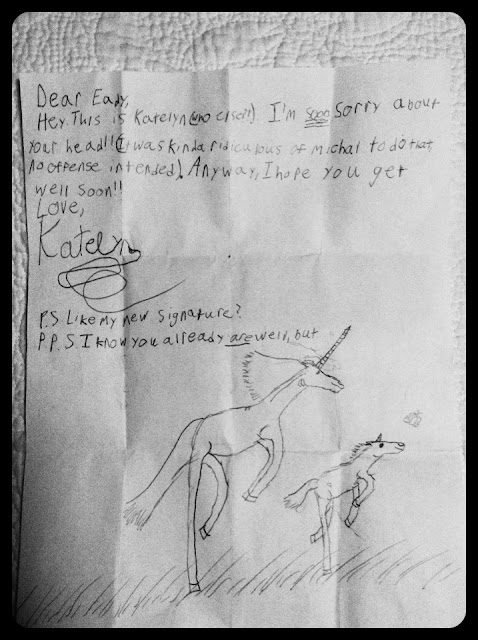 Dear Eady,
Hey. This is Katelyn (who else!!) I'm sooo sorry about
your head!! (It was kinda ridiculous of Michal to do that,
no offense intended). Anyway, I hope you get
well soon!!
Love,
Katelyn
P.S Like my new signature?
P.P.S. I know you already are well, but